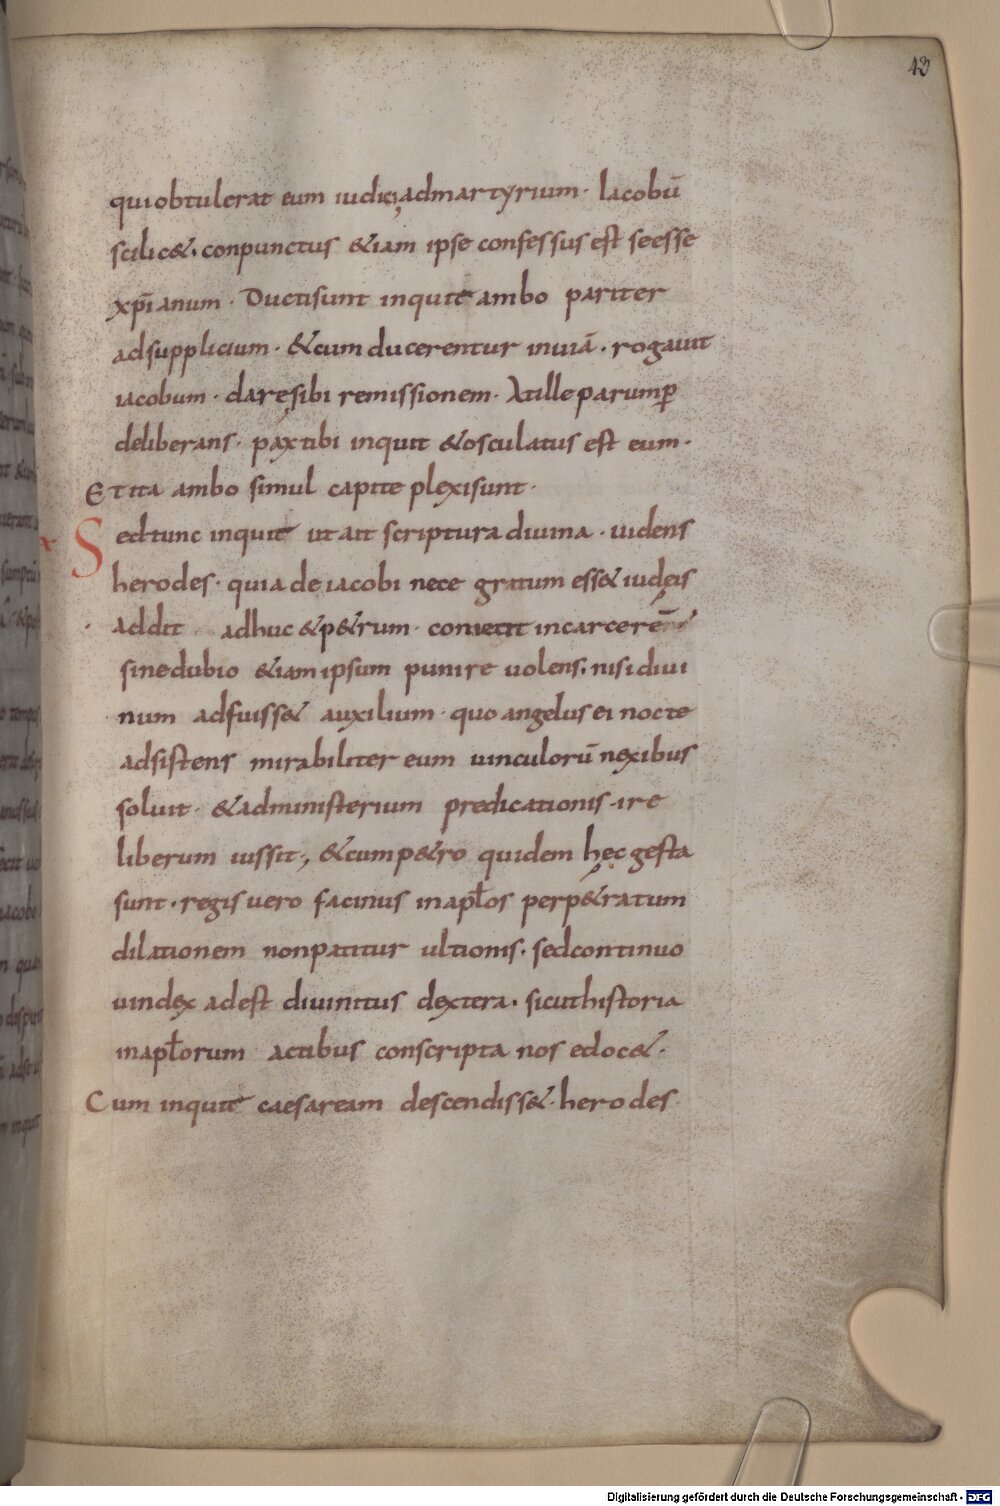 43
qui obtulerat eum iudici admartyrium · Iacobū
scilic& · conpunctus &iam ipse confessus est seesse
xp̄ianum · Ducti sunt inquit ambo pariter
adsupplicium · &cum ducerentur inuiā · rogauit
iacobum · dare sibi remissionem · At ille parump̄
deliberans · pax tibi inquit &osculatus est eum ·
Et ita ambo simul capite plexi sunt ·
Sed tunc inquit ut ait scriptura diuina · uidens
herodes · quia de iacobi nece gratum ess& iudęis
addit adhuc &p&rum · coniecit incarcerē
sinedubio &iam ipsum punire uolens · nisi diui
num adfuiss& auxilium · quo angelus ei nocte
adsistens mirabiliter eum uinculorū nexibus
soluit · &administerium predicationis · ire
liberum iussit ; &cum p&ro quidem hęc gesta
sunt · regis uero facinus inapłos perp&ratum
dilationem nonpatitur ultionis · sed continuo
uindex adest diuinitus dextera · sicut historia
inapłorum actibus conscripta nos edoc& ·
Cum inquit caesaream descendiss& · herodes
Digitalisierung gefördert durch die Deutsche Forschungsgemeinschaft - DFG